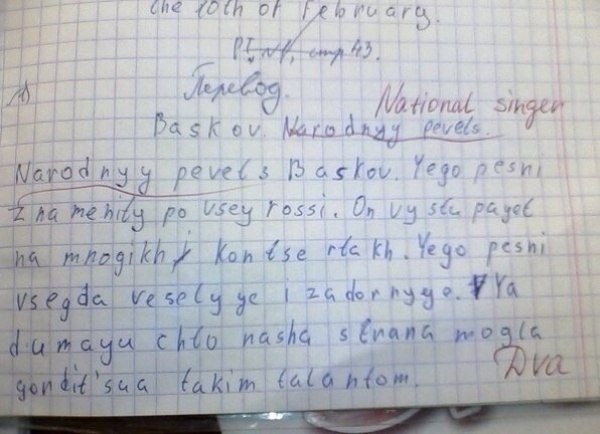 the 10th of February.
стр 43.
Перевод.
National singer
Baskov. Narodnyy pevets.
Narodnyy pevets Baskov. Yego pesni
znamenity po vsey rossi. On vystupayet
na mnogikh kontsertakh. Yego pesni
vsegda veselyye i zadornyye. Ya
dumayu chto nasha strana mogla
gordit'sya takim talantom.
Dva